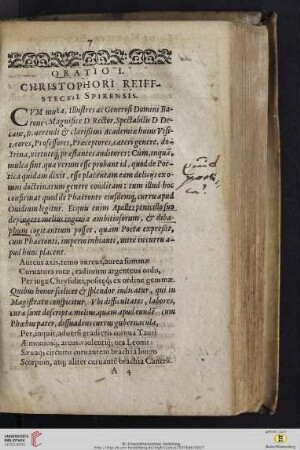 7
ORATIO I.
CHRISTOPHORI REIFF-
STECKII SPIRENSIS.
CVM multa, Illustres ac Generosi Domini Ba-
rones, Magnifice D. Rector, Spectabilis D. De-
cane, reverendi & clarissimi Academiæ huius Visi-
tatores, Professores, Præceptores, cæteri genere, do-
ctrina, virtuteq; præstantes auditores: Cum, inquã,
multa sint, quæ verum esse probant id, quod de Poë-
tica quidam dixit, esse placentulam ex deliciis ex o-
mnium doctrinarum genere conditam: tum illud hoc
confirmat quod de Phaëtonte eiusdemq; curru apud
Ovidium legitur. Equis enim Apelles penicillo suo
depingere melius ingenia ambitiosorum, & diba-
phum cogitantium posset, quam Poëta expressit,
cum Phaëtonta, imperio inhiante, vehi in curru a-
pud hunc placent.
Aureus axis, temo aureus, aurea summæ
Curvatura rotæ, radiorum argenteus ordo,
Per iuga Chrysoliti, positæq; ex ordine gemmæ.
Quibus honor solicitus & splendor indicatur, qui in
Magistratu conspicitur. Vbi difficultates, labores,
curæ sunt descriptæ melius, quam apud eundẽ, cum
Phœbus pater, dissuadens currus gubernacula,
Per, inquit, adversi gradieris cornua Tauri
Æmoniosq; arcus, violentiq; ora Leonis:
Sævaq; circuitu curvantem brachia longo
Scorpion, atq; aliter curuantẽ brachia Cancrũ.
A 4